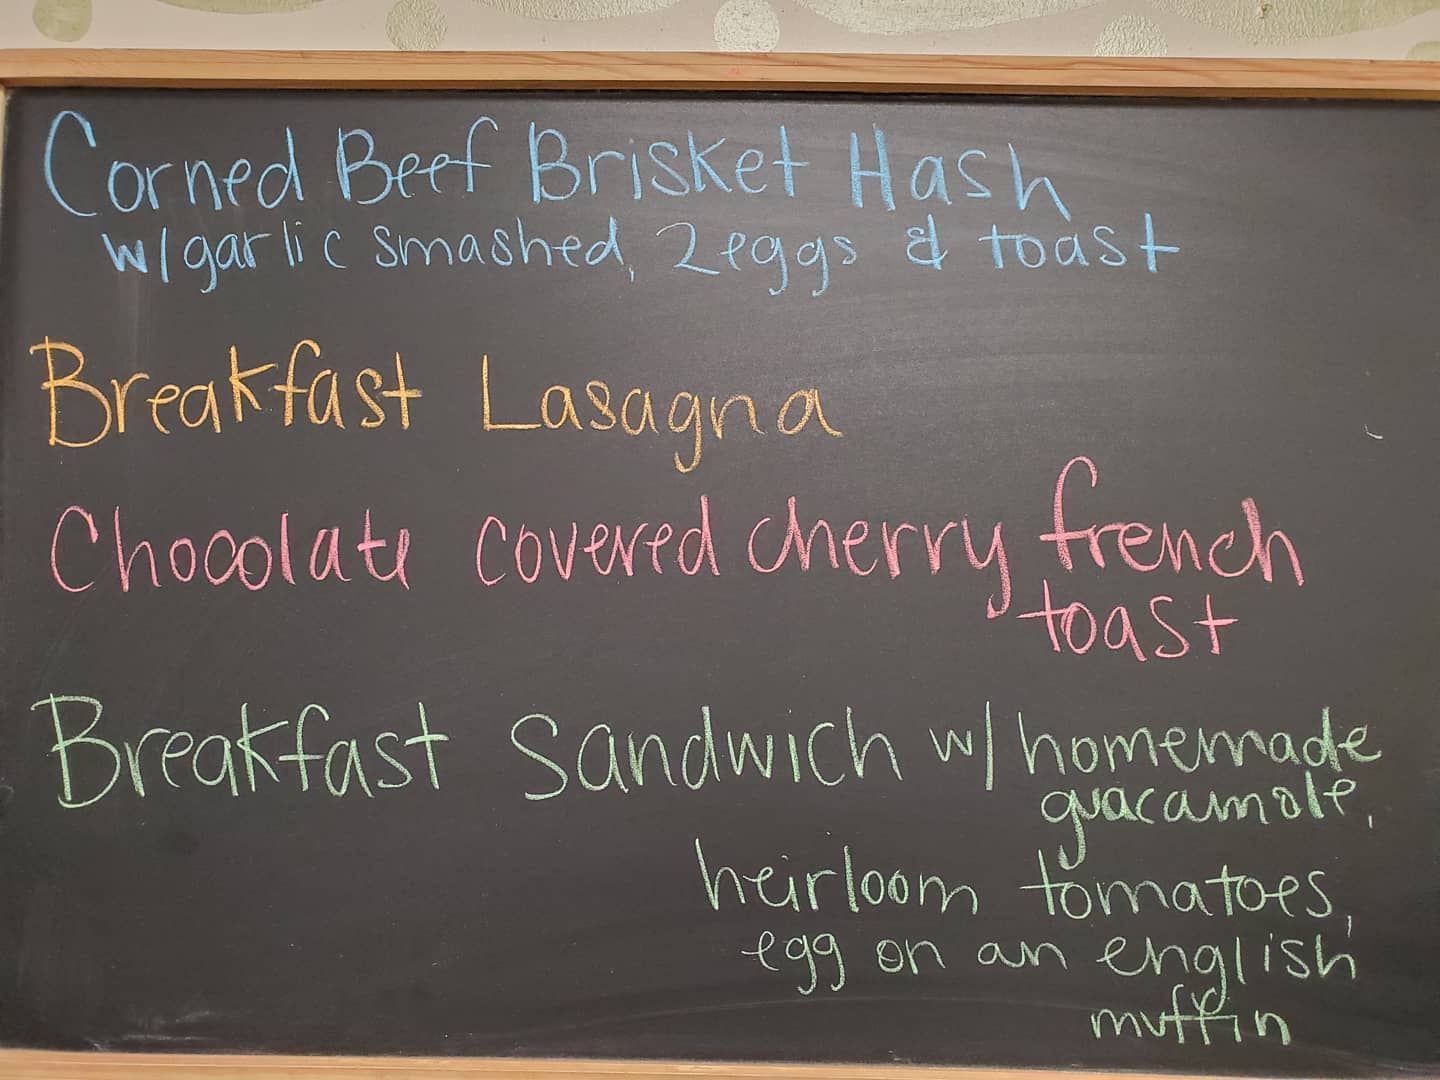 Corned Beef Brisket Hash
w/garlic smashed, 2 eggs & toast
Breakfast Lasagna
Chocolate covered cherry french
toast
Breakfast Sandwich w/ homemade
guacamole,
heirloom tomatoes,
egg on an english
muffin